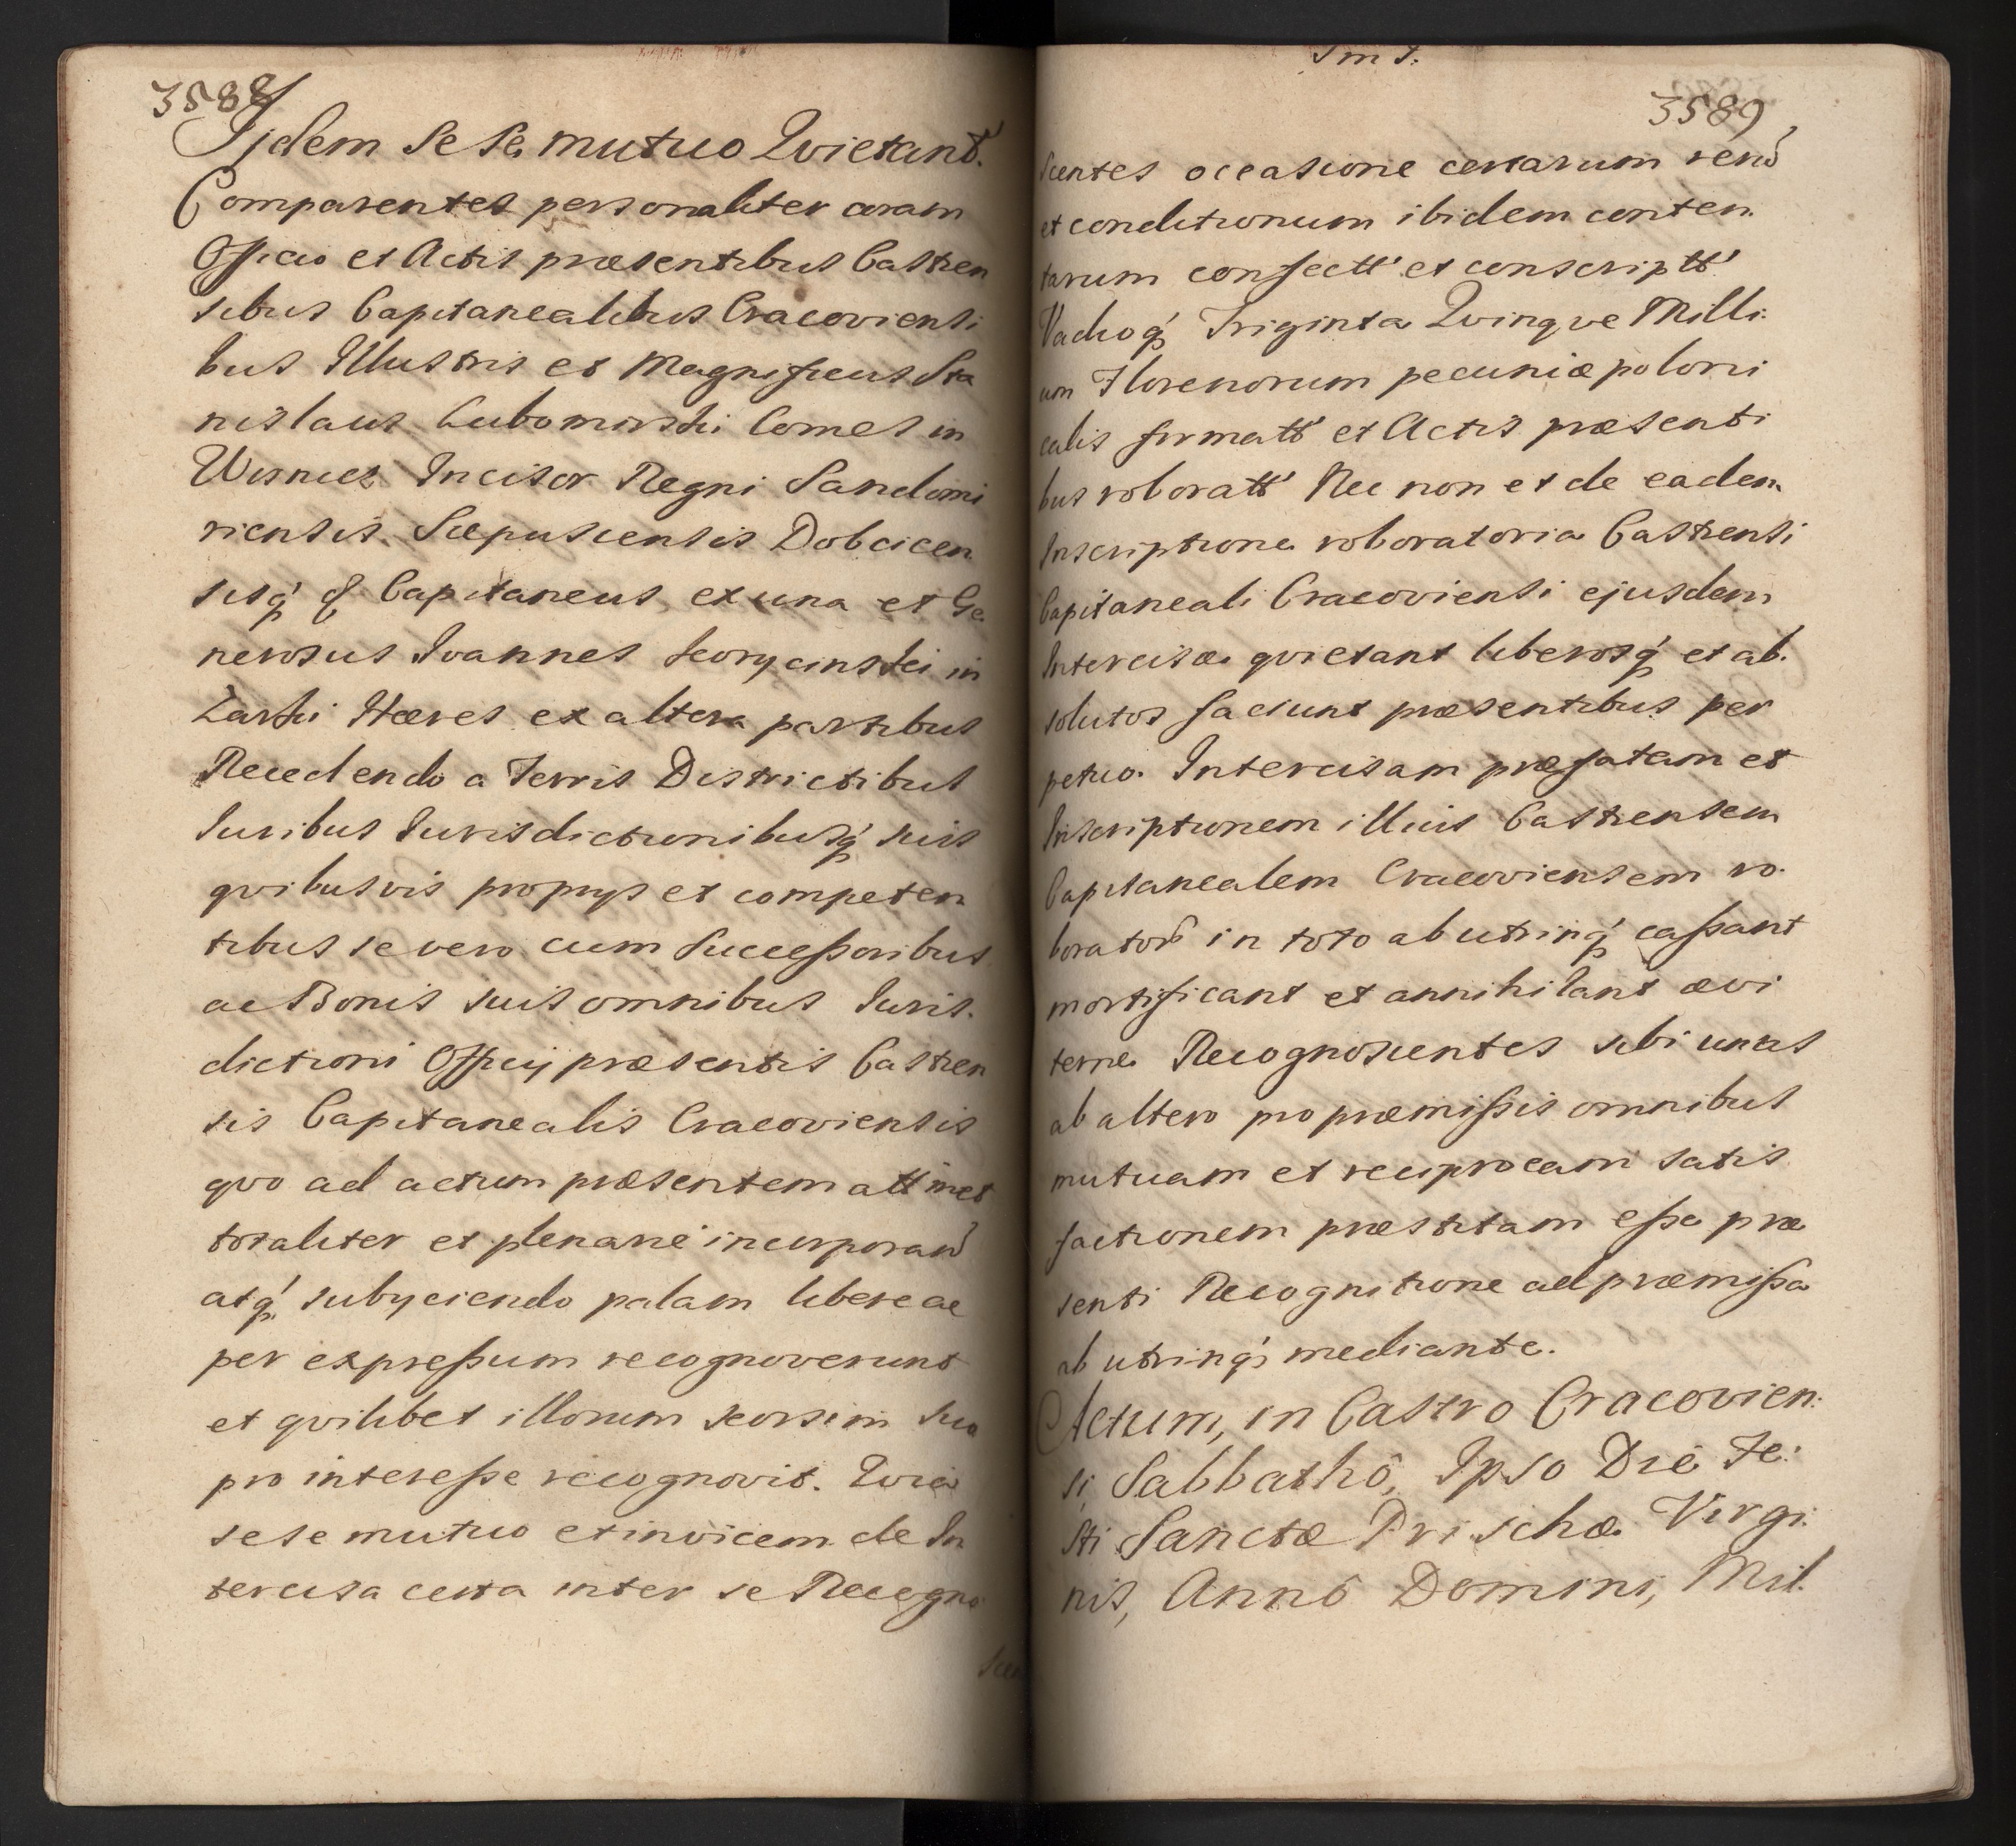 3588
Ijdem Se se mutuo Qvietant.
Comparentes personaliter coram
Officio et Actis præsentibus Castren
sibus Capitanealibus Cracoviensi
bus Illustris et Magnificus Sta
nislaus Lubomirski Comes in
Wisnicz Incisor Regni Sandomi
riensis Scepusiensis Dobcicen
sisq́ & Capitaneus, ex una et Ge
nerosus Ioannes in
Hæres ex altera partibus
Recedendo a Terris Districtibus
Iuribus Iurisdictionibusq́ suis
qvibusvis proprys et competen
tibus se vero cum Successoribus
ac Bonis suis omnibus Iuris.
dictioni Officij præsentis Castren
sis Capitanealis Cracoviensis
qvo ad actum præsentem attinet
totaliter et plenarie incorporand
atq́ subyciendo palam libere ac
per expressum recognoverunt
et qvilibet illorum seorsim suo
pro interesse recognovit. Qvia
sese mutuo et invicem de In
tercisa certa inter se Recogno
scen
3589
scentes occasione certarum rerū
et conditionum ibidem conten.
tarum confectt et conscriptt
Vadioq́ Triginta Qvinqve Milli.
um Florenorum pecuniæ poloni
calis firmatt et Actis præsenti
bus roboratt Nec non et de eadem
Inscriptione roboratoria Castrensi
Capitaneali Cracoviensi ejusdem
Intercisæ qvietant liberosq́ et ab.
solutos faciunt præsentibus per
petuo. Intercisam præfatam et
Inscriptionem illius Castrensem
Capitanealem Cracoviensem ro.
borator in toto ab utrinq́ cassant
mortificant et annihilant ævi
terne Recognoscentes sibi unus
ab altero pro præmissis omnibus
mutuam et reciprocam satis
factionem præstitam esse præ
senti Recognitione ad præmissa
ab utrinq́ mediante.
Actum, in Castro Cracovien:
si, Sabbathô, Ipso Die Fe:
sti Sanctæ Prischæ Virgi:
nis, Annô Domini, Mil.